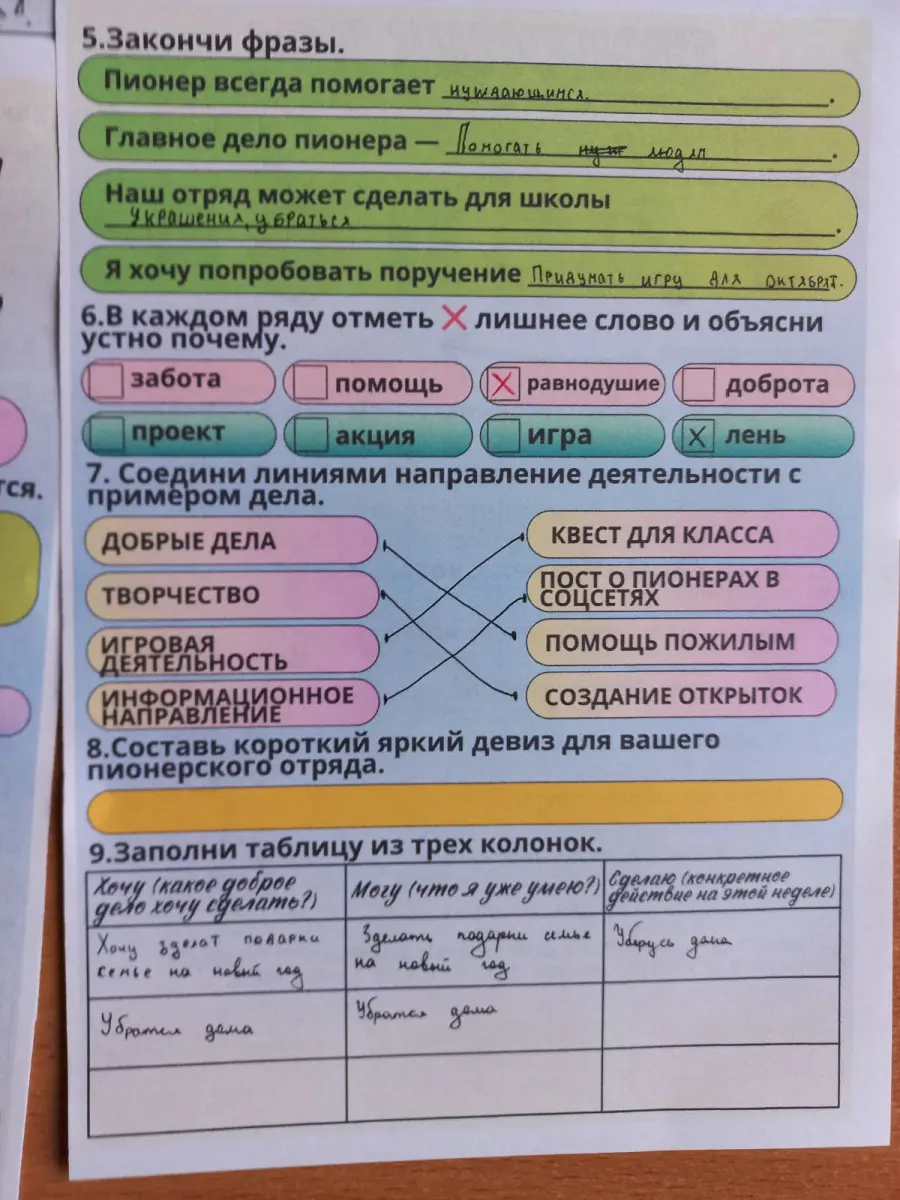 5.Закончи фразы.
Пионер всегда помогает нуждающимся.
Главное дело пионера — Помогать людям
Наш отряд может сделать для школы
Украшения, убраться.
Я хочу попробовать поручение Придумать игру для октябрят.
6.В каждом ряду отметь X лишнее слово и объясни
устно почему.
забота помощь X равнодушие доброта
проект акция игра X лень
7. Соедини линиями направление деятельности с
примером дела.
ДОБРЫЕ ДЕЛА
ТВОРЧЕСТВО
ИГРОВАЯ
ДЕЯТЕЛЬНОСТЬ
ИНФОРМАЦИОННОЕ
НАПРАВЛЕНИЕ
КВЕСТ ДЛЯ КЛАССА
ПОСТ О ПИОНЕРАХ В
СОЦСЕТЯХ
ПОМОЩЬ ПОЖИЛЫМ
СОЗДАНИЕ ОТКРЫТОК
8.Составь короткий яркий девиз для вашего
пионерского отряда.
9.Заполни таблицу из трех колонок.
Хочу (какое доброе
дело хочу сделать?)
Могу (что я уже умею?)
Сделаю (конкретное
действие на этой неделе)
Хочу зделат подарки
семье на новый год
Зделать подарки семье
на новый год
Уберусь дома
Убратся дома
Убратся дома
тся.